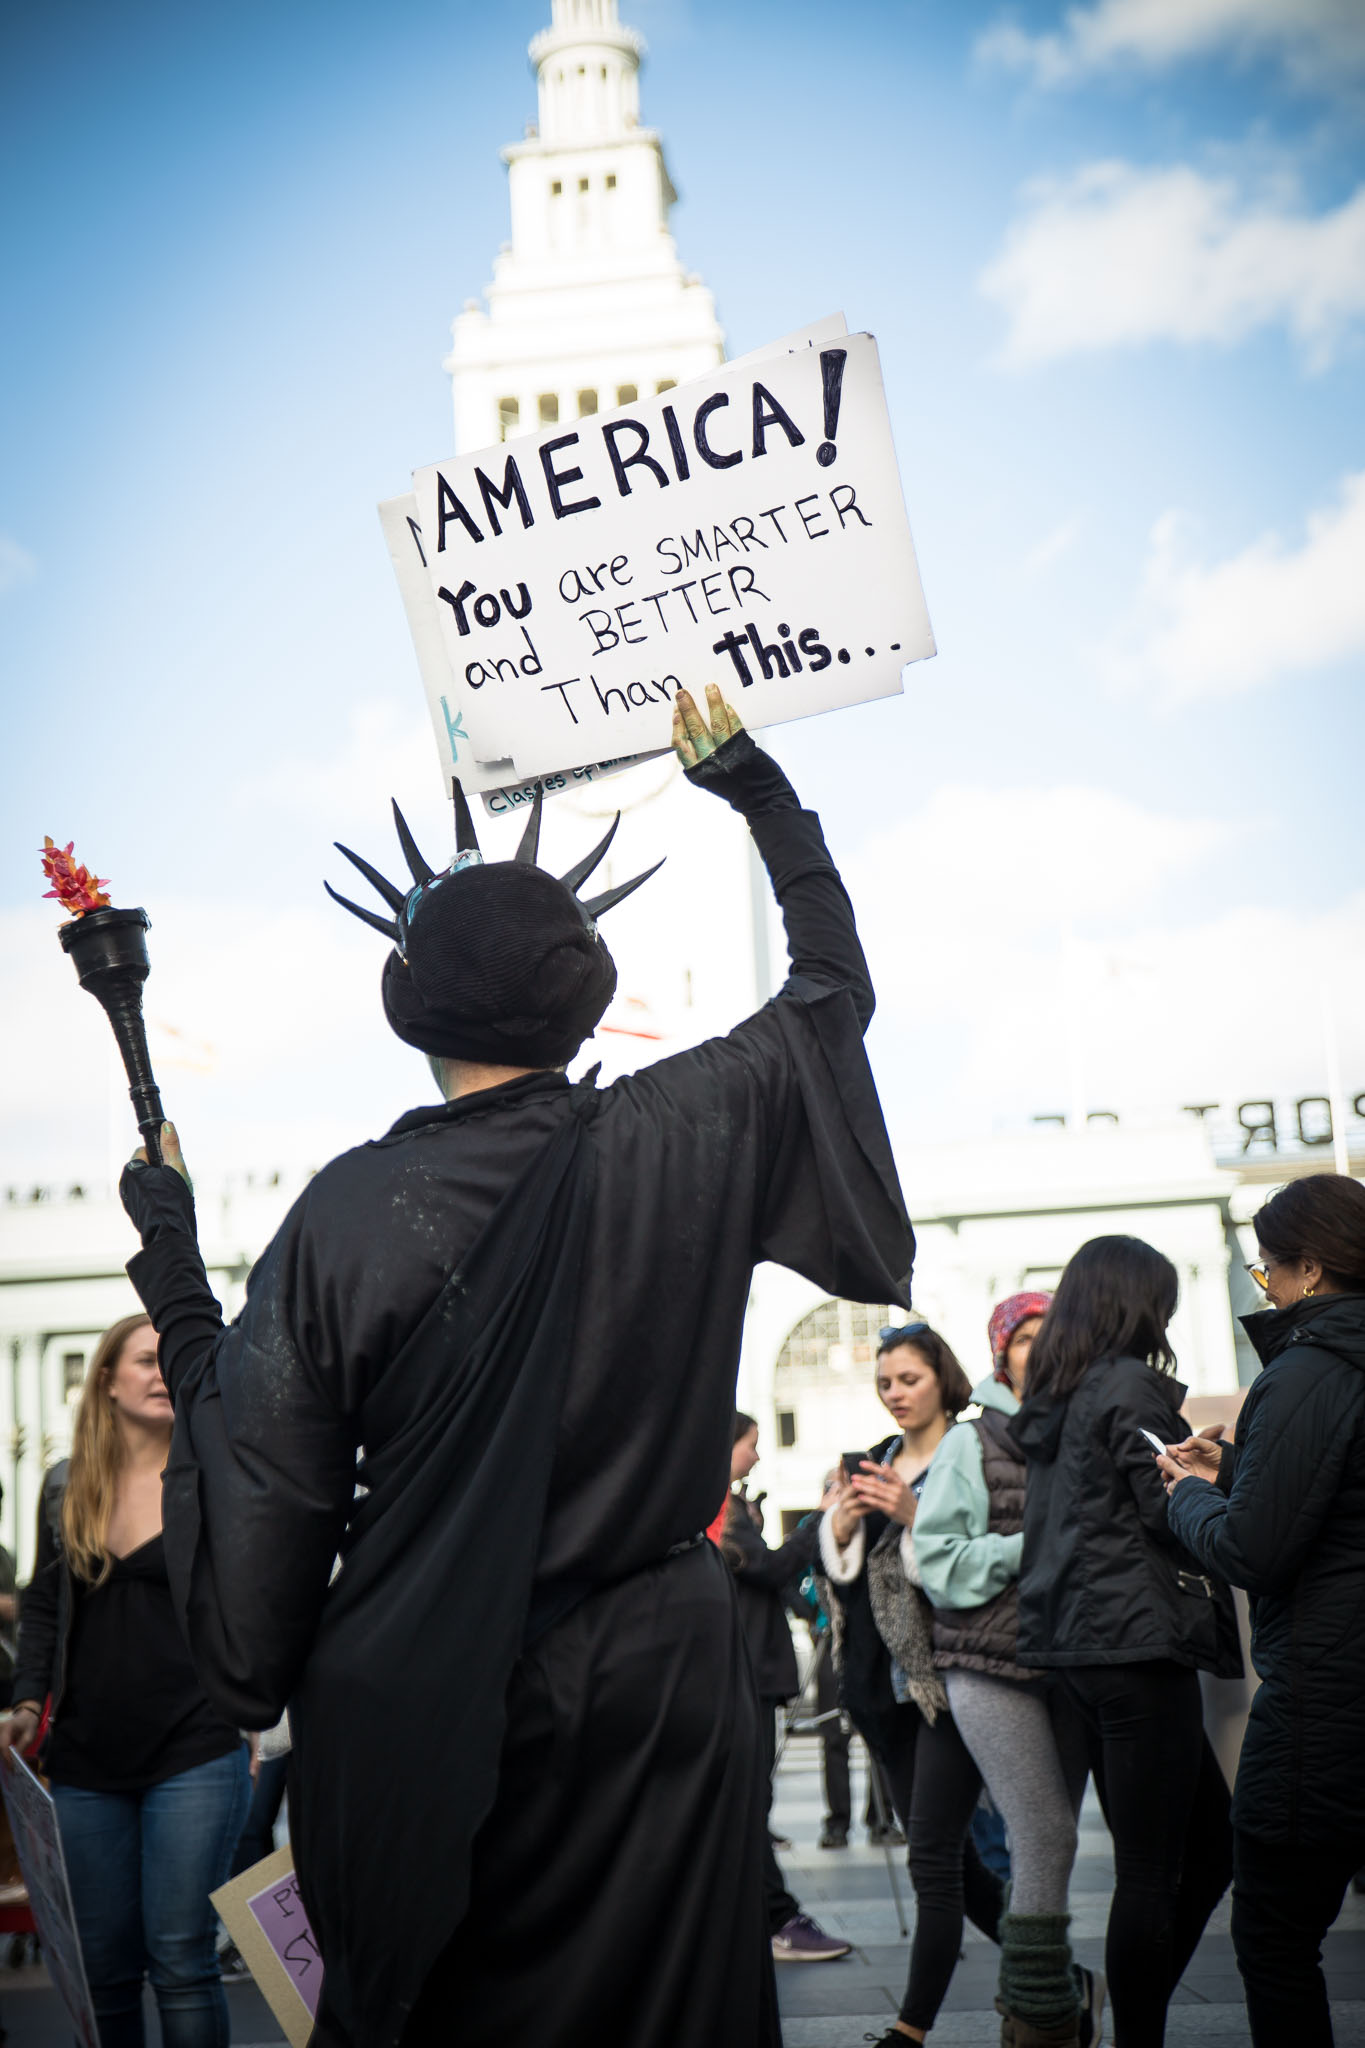 AMERICA!
You are SMARTER
and BETTER
Than This...
K
classes of
PORT